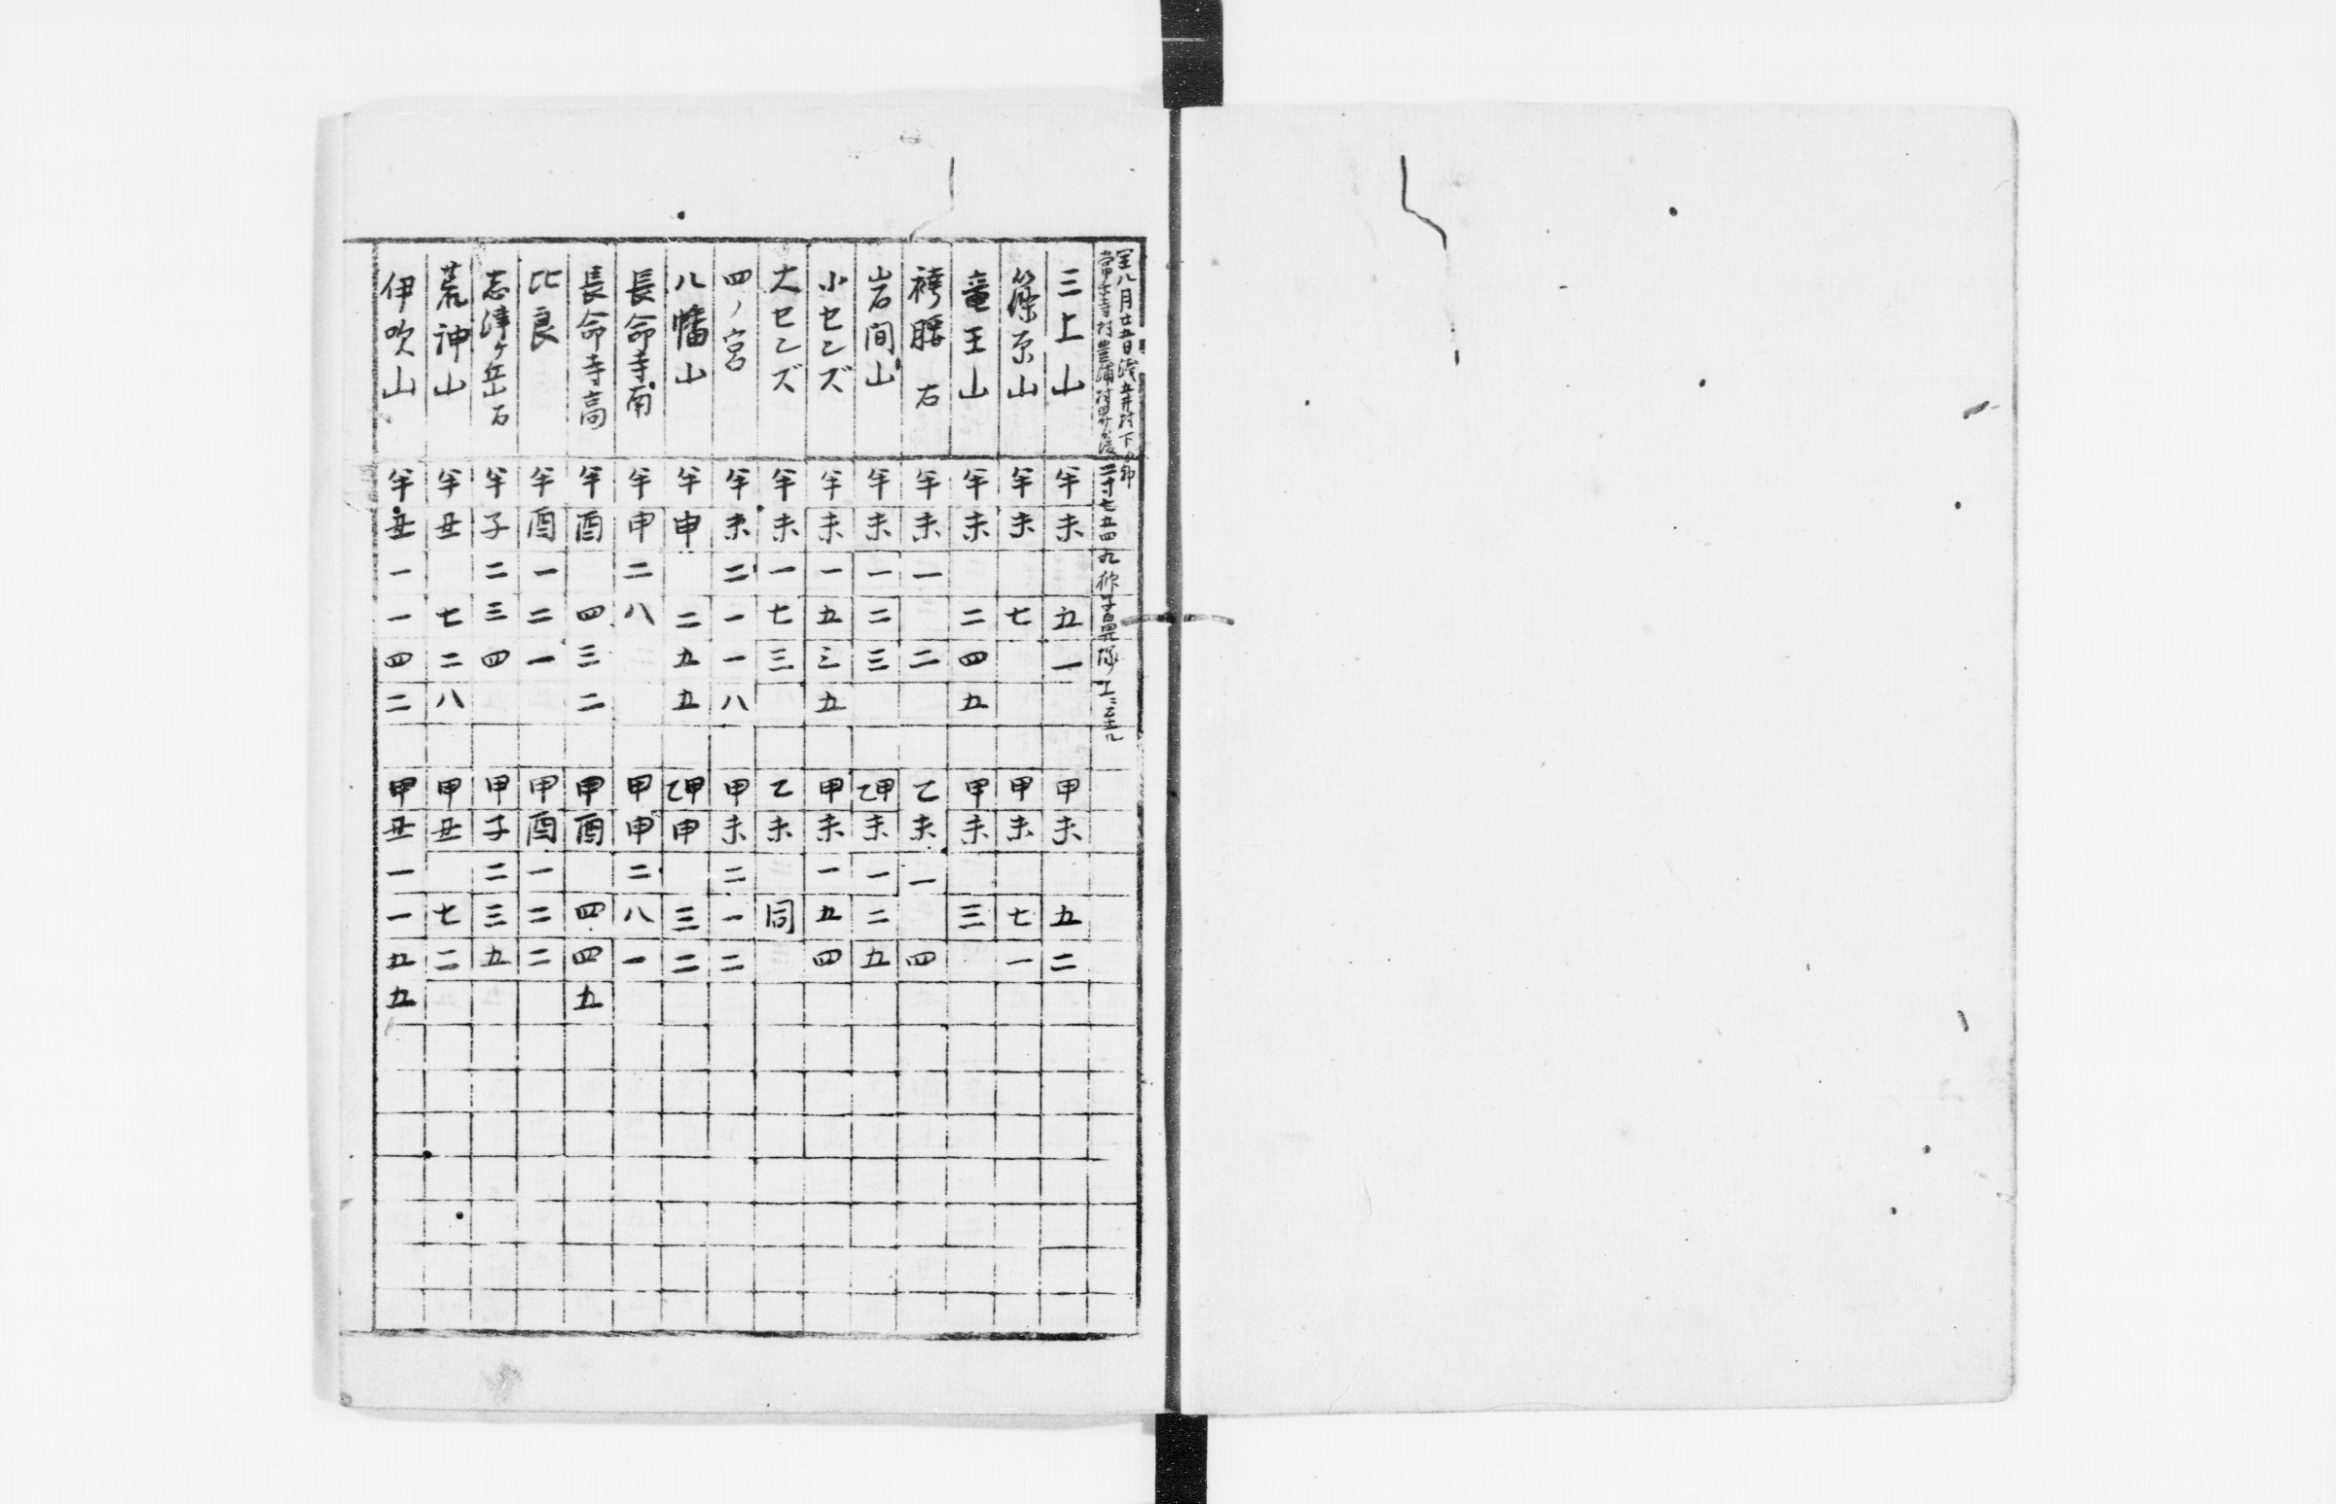 三上山 半未 五一 甲未 五二
篠原山 半未 七 甲未 七一
竜王山 半未 二四五 甲未 三
袴腰 右 半未一 二 乙未一 四
岩間山 半未一二三 乙甲未一二五
小センズ 半未一五三五 甲未一五四
大センズ 半未一七三 乙未 同
四ノ宮 半未二一一八 甲未二一二
八幡山 半申 二五五 乙甲申 三二
長命寺南 半申二八 甲申二八一
長命寺高 半酉 四三二 甲酉 四四五
比良 半酉一二一 甲酉一二二
志津ケ岳 右 半子二三四 甲子二三五
荒神山 半丑 七二八 甲丑 七二
伊吹山 半丑一一四二 甲丑一一五五